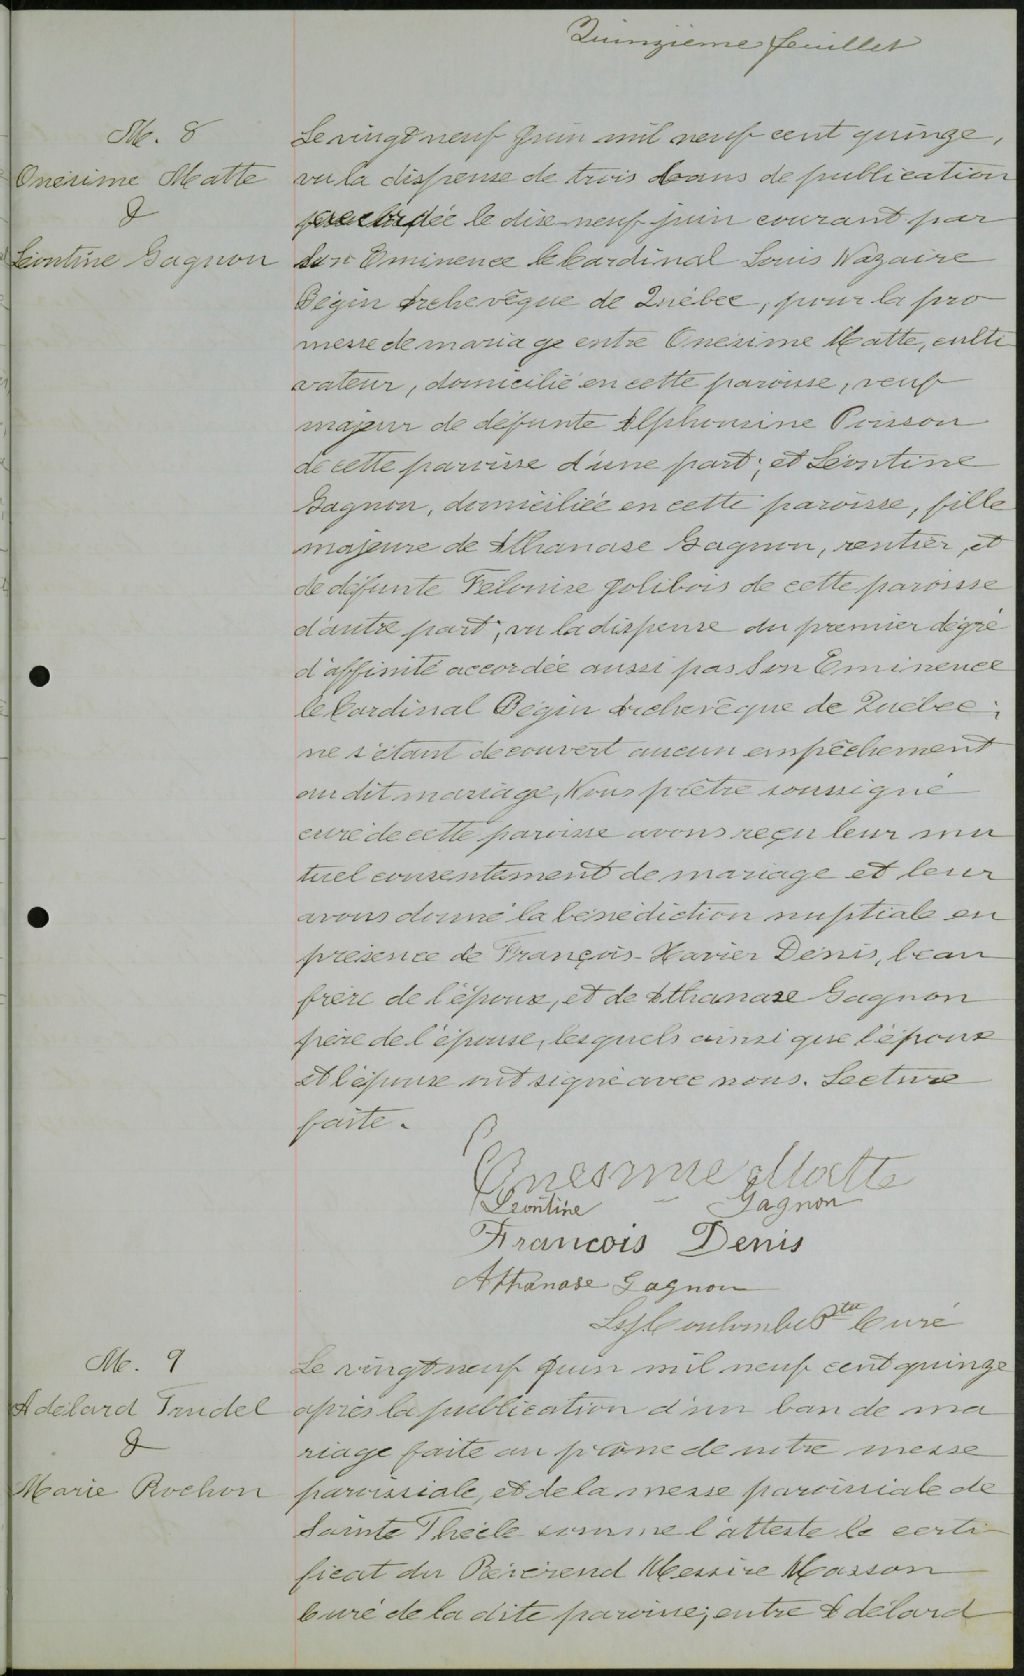 Quinzième feuillet
M. 8
Onésime Matte
&
Léontine Gagnon
Le vingt neuf Juin mil neuf cent quinze,
vu la dispense de trois bans de publication
accordée le dixe neuf juin courant par
Son Eminence le Cardinal Louis Nazaire
Bégin Archevêque de Québec, pour la pro
messe de mariage entre Onésime Matte, culti
vateur, domicilié en cette paroisse, veuf
majeur de défunte Alphonsine Poisson
de cette paroisse d'une part; et Léontine
Gagnon, domiciliée en cette paroisse, fille
majeure de Athanase Gagnon, rentier, et
de défunte Félonise Jolibois de cette paroisse
d'autre part; vu la dispense du premier dégré
d'affinité accordée aussi pas Son Eminence
le Cardinal Bégin Archevêque de Québec;
ne s'étant decouvert aucun empêchement
au dit mariage, Nous prêtre soussigné
curé de cette paroisse avons reçu leur mu
tuel consentement de mariage et leur
avons donné la bénédiction nuptiale en
présence de François-Xavier Denis, beau
frère de l'époux, et de Athanase Gagnon
père de l'épouse, lesquels ainsi que l'époux
et l'épouse ont signé avec nous. Lecture
faite.
Onesime Matte
Leontine Gagnon
Francois Denis
Athanase Gagnon
Coulombe Ptre Curé
M. 9
Adelard Trudel
&
Marie Rochon
Le vingt neuf Juin mil neuf cent quinze
après la publication d'un ban de ma
riage faite au prône de notre messe
paroissiale, et de la messe paroissiale de
Sainte Thècle comme l'atteste le certi
ficat du Révérend Messire Masson
Curé de la dite paroisse; entre Adélard